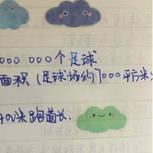 000 000个足球
面积（足球场约7000平方米）
米跑道长.